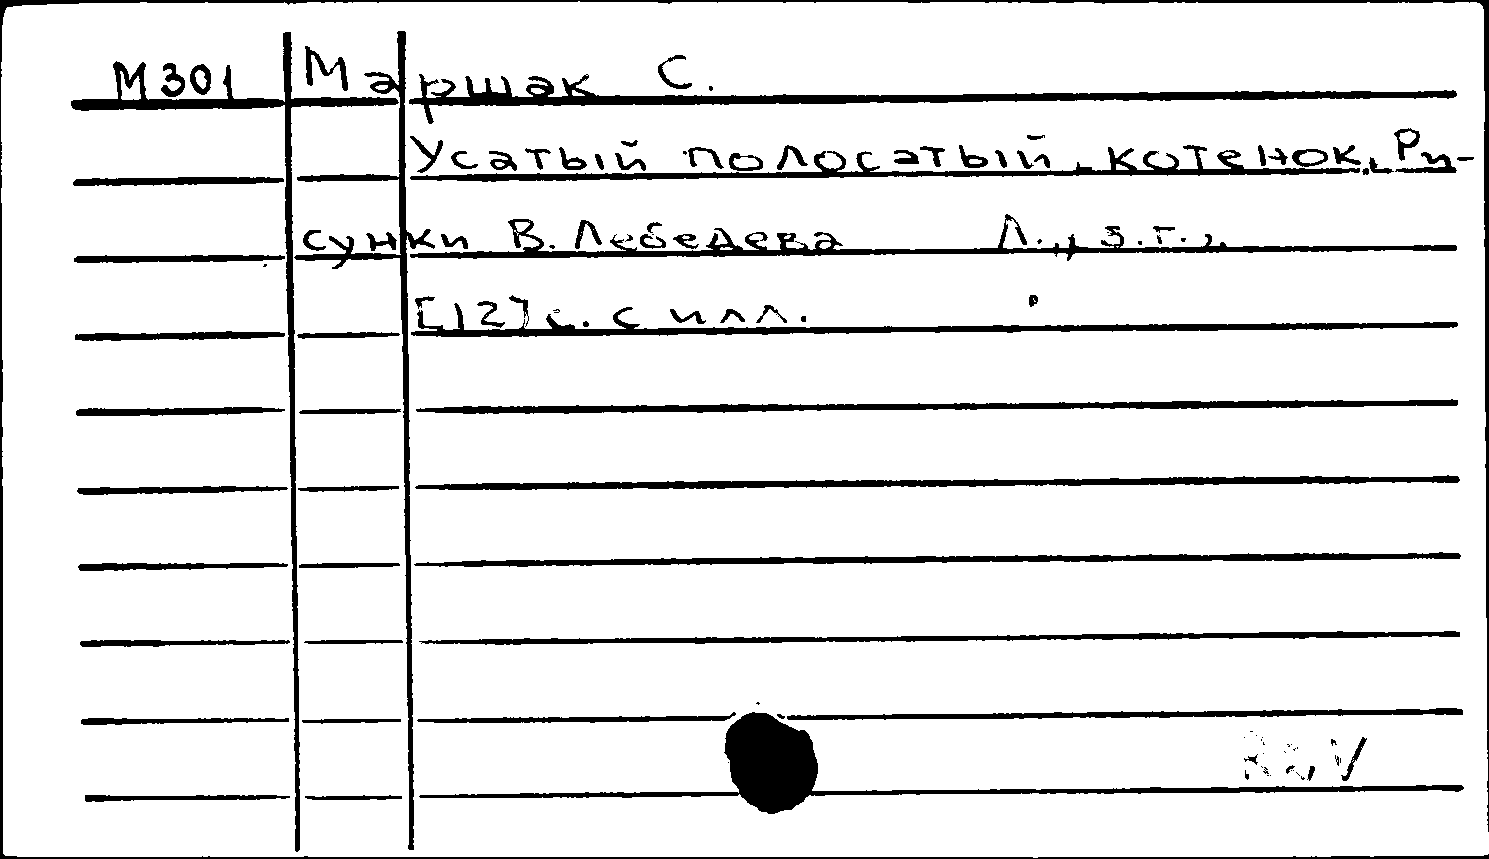 М301 Маршак С.
Усатый полосатый котенок. Ри-
сунки В. Лебедева Л., s.г.,
[12] с. с илл.